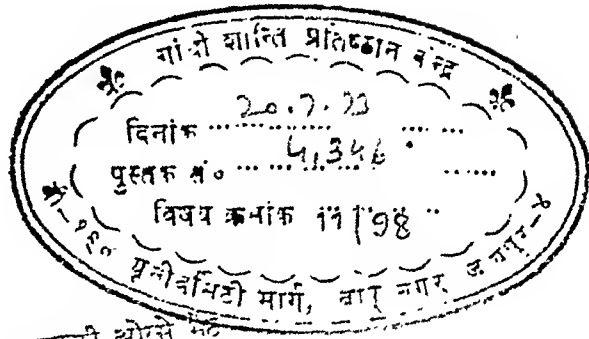 गांधी शान्ति प्रतिष्ठान केन्द्र
दिनांक 20.7.73
पुस्तक सं० 4,346
विषय क्रमांक 11/98
बी-१६० यूनीवर्सिटी मार्ग, बापू नगर, जयपुर-४
ओरसे भेंट